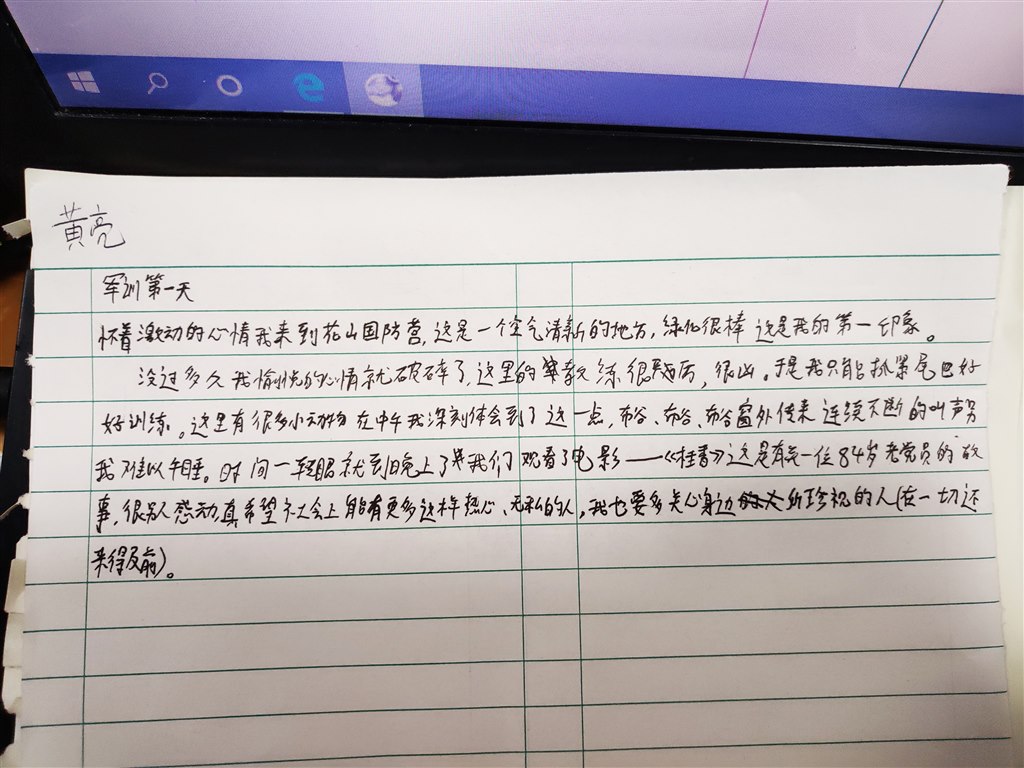 黄亮
军训第一天
怀着激动的心情我来到花山国防营,这是一个空气清新的地方,绿化很棒 这是我的第一印象。
没过多久我愉悦的心情就破碎了,这里的教练很严厉,很凶。于是我只能抓紧尾巴好
好训练。这里有很多小动物 在中午我深刻体会到了这一点,布谷、布谷、布谷窗外传来连续不断的叫声另
我难以午睡。时间一转眼就到晚上了 我们观看了电影——《桂香》这是有关一位84岁老党员的故
事,很别人感动真希望社会上能有更多这样热心、无私的人,我也要多关心身边所珍视的人(在一切还
来得及前)。